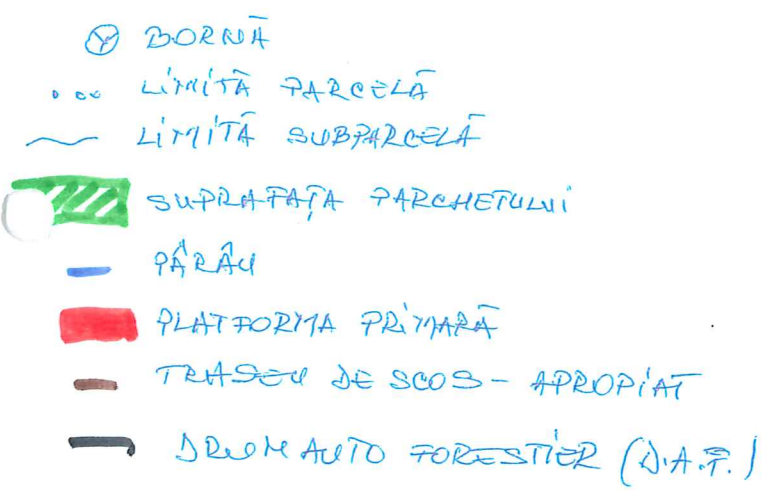 BORNĂ
LIMITĂ PARCELĂ
LIMITĂ SUBPARCELĂ
SUPRAFAȚA PARCHETULUI
PÂRÂU
PLATFORMA PRIMARĂ
TRASEU DE SCOS - APROPIAT
DRUM AUTO FORESTIER (D.A.F.)